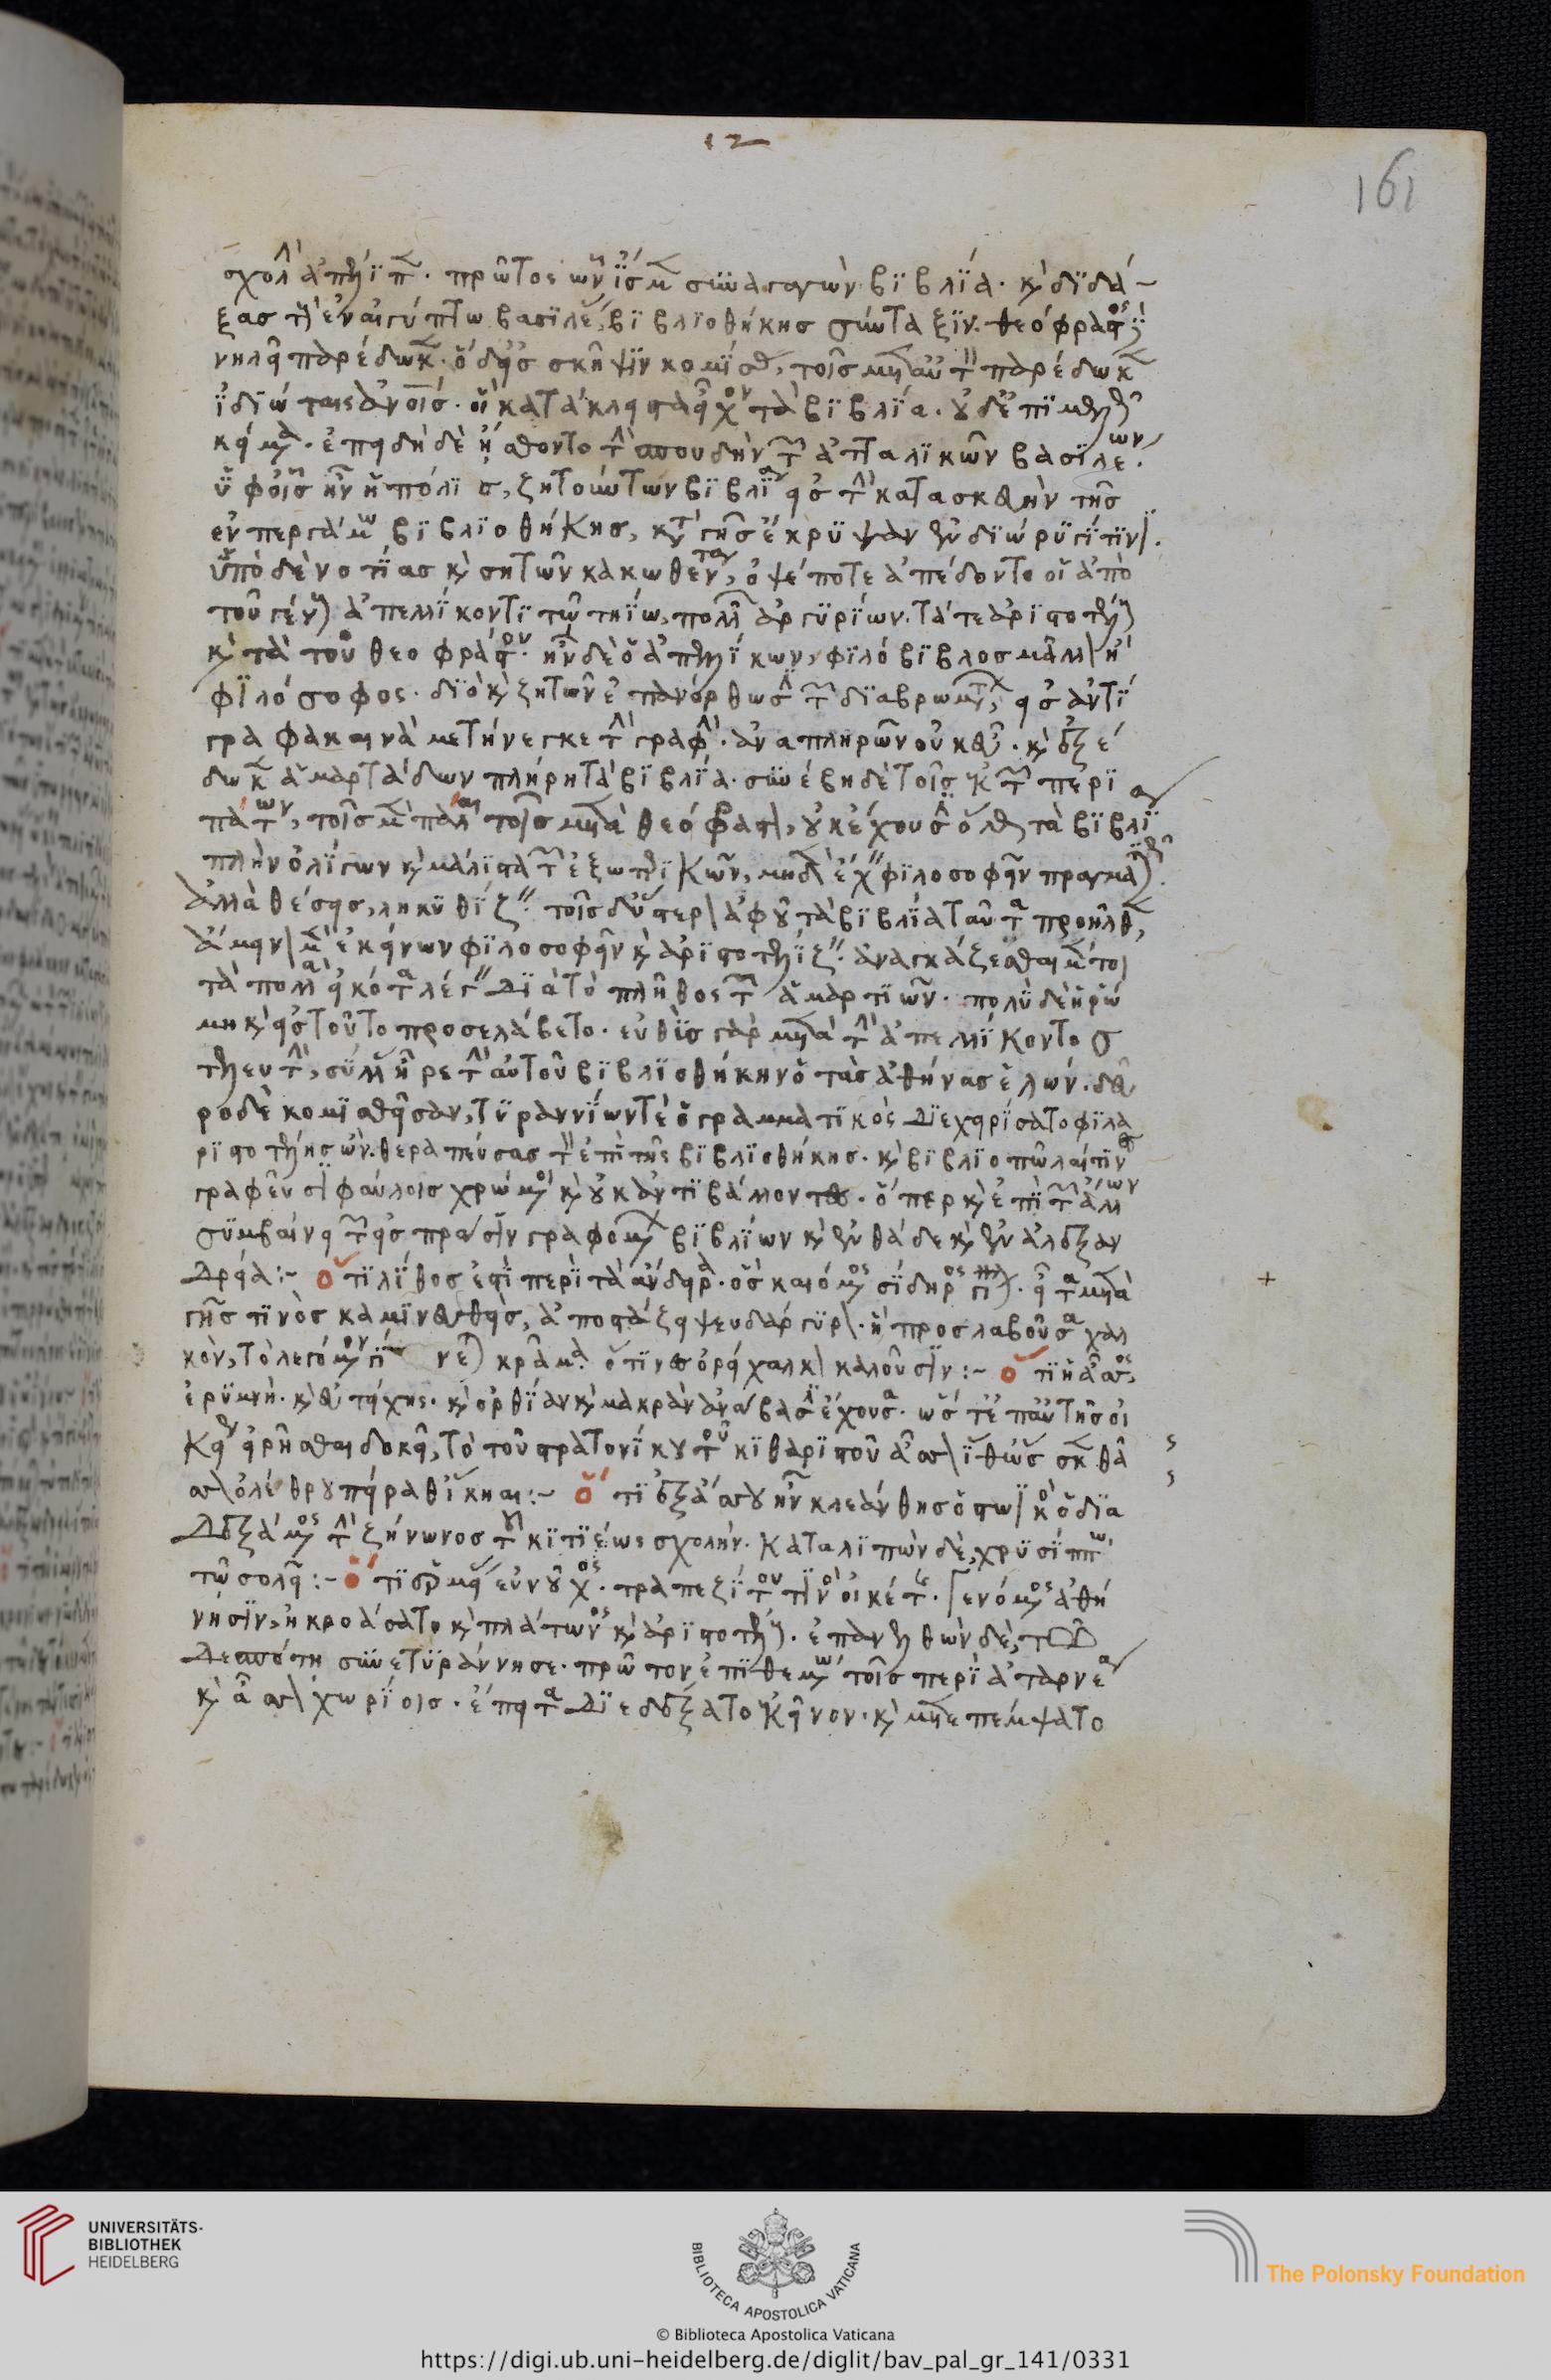 12
161
σχολὴν ἀπέλιπεν· πρῶτος ὧν ἴσμεν συναγαγὼν βιβλία· καὶ διδά-
ξας τοὺς ἐν αἰγύπτω βασιλέας, βιβλιοθήκης σύνταξιν· θεόφραστος δὲ
νηλεῖ παρέδωκεν· ὁ δ' εἰς σκῆψιν κομίσας, τοῖς μετ' αὐτὸν παρέδωκεν
ἰδιώταις ἀνοις· οἳ κατάκλειστα εἶχον τὰ βιβλία· οὐδ' ἐπιμελῶς
κείμενα· ἐπειδὴ δὲ ἤσθοντο τὴν σπουδὴν τῶν ἀτταλικῶν βασιλέων
ὑφ' οἷς ἦν ἡ πόλις, ζητούντων βιβλία εἰς τὴν κατασκευὴν τῆς
ἐν περγάμω βιβλιοθήκης, κατὰ γῆς ἔκρυψαν ἐν διώρυγί τινι.
ὑπὸ δὲ νοτίας καὶ σητῶν κακωθέντα, ὀψέ ποτε ἀπέδοντο οἱ ἀπὸ
τοῦ γένους ἀπελλίκοντι τῶ τηίω, πολλῶν ἀργυρίων· τά τε ἀριστοτέλους
καὶ τὰ τοῦ θεοφράστου· ἦν δὲ ὁ ἀπελλίκων, φιλόβιβλος μᾶλλον ἢ
φιλόσοφος· διὸ καὶ ζητῶν ἐπανόρθωσιν τῶν διαβρωμάτων, εἰς ἀντί
γραφα καινὰ μετήνεγκε τὴν γραφὴν· ἀναπληρῶν οὐκ εὖ· καὶ ἐξέ
δωκεν ἁμαρτάδων πλήρη τὰ βιβλία· συνέβη δὲ τοῖς ἐκ τῶν περι
πάτων, τοῖς μὲν πάλαι τοῖς μετὰ θεόφραστον, οὐκ ἔχουσιν ὅλως τὰ βιβλία
πλὴν ὀλίγων καὶ μάλιστα τῶν ἐξωτερικῶν, μηδὲν ἔχειν φιλοσοφεῖν πραγματικῶς.
ἀλλὰ θέσεις, ληκυθίζειν· τοῖς δ' ὕστερον ἀφ' οὗ τὰ βιβλία ταῦτα προῆλθεν,
ἄμεινον μὲν ἐκείνων φιλοσοφεῖν καὶ ἀριστοτελίζειν· ἀναγκάζεσθαι μέντοι
τὰ πολλὰ εἰκότα λέγειν διὰ τὸ πλῆθος τῶν ἁμαρτιῶν· πολὺ δὲ ἡ ῥώ
μη καὶ εἰς τοῦτο προσελάβετο· εὐθὺς γὰρ μετὰ τὴν ἀπελλίκοντος
τελευτὴν, σύλλας ἦρε τὴν αὐτοῦ βιβλιοθήκην ὁ τὰς ἀθήνας ἑλών· δεῦ
ρο δὲ κομισθεῖσαν, τυραννίων τὲ ὁ γραμματικὸς διεχειρίσατο φιλα
ριστοτέλης ὢν· θεραπεύσας τὸν ἐπὶ τῆς βιβλιοθήκης· καὶ βιβλιοπῶλαί τινες
γραφεῦσι φαύλοις χρώμενοι καὶ οὐκ ἀντιβάλλοντες· ὅπερ καὶ ἐπὶ τῶν ἄλλων
συμβαίνει τῶν εἰς πρᾶσιν γραφομένων βιβλίων καὶ ἐνθάδε καὶ ἐν ἀλεξαν
δρεία:- ὅτι λίθος ἐστὶ περὶ τὰ ἄνδειρα· ὃς καιόμενος σίδηρος γίνεται· εἶτα μετὰ
γῆς τινὸς καμινευθεὶς, ἀποστάζει ψευδάργυρον· ἣ προσλαβοῦσα χαλ
κὸν, τὸ λεγόμενον γί νεται κρᾶμα ὅ τινες ὀρείχαλκον καλοῦσιν:- ὅτι ἡ ἄσσος,
ἐρυμνὴ· καὶ εὐτείχης· καὶ ὀρθίαν καὶ μακρὰν ἀνάβασιν ἔχουσα· ὥστ' ἐπ' αὐτῆς οἰ
κείως εἰρῆσθαι δοκεῖ, τὸ τοῦ στρατονίκου τοῦ κιθαριστοῦ ἄσσον ἴθ' ὥς κεν θᾶσ
σον ὀλέθρου πείραθ' ἵκηαι:- ὅτι ἐξ ἄσσου ἦν κλεάνθης ὁ στωικὸς ὁ δια
δεξάμενος τὴν ζήνωνος τοῦ κιτιέως σχολήν· καταλιπὼν δὲ, χρυσίππω
τῶ σολεῖ:- ὅτι ἑρμείας εὐνοῦχος· τραπεζίτου τινὸς οἰκέτης· γενόμενος ἀθή
νησιν, ἠκροάσατο καὶ πλάτωνος καὶ ἀριστοτέλους· ἐπανελθὼν δὲ, τῶ
δεσπότη συνετυράννησε· πρῶτον ἐπιθεμένω τοῖς περὶ ἀταρνέα
καὶ ἄσσον χωρίοις· ἔπειτα διεδέξατο ἐκεῖνον· καὶ μετεπέμψατο
UNIVERSITÄTS-
BIBLIOTHEK
HEIDELBERG
BIBLIOTECA APOSTOLICA VATICANA
The Polonsky Foundation
© Biblioteca Apostolica Vaticana
https://digi.ub.uni-heidelberg.de/diglit/bav_pal_gr_141/0331